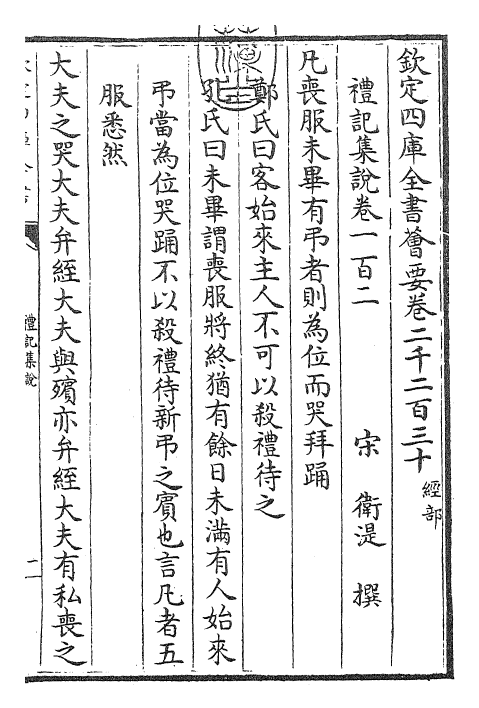 欽定四庫全書薈要卷二千二百三十
經部
禮記集說卷一百二
宋 衛湜 撰
凡喪服未畢有弔者則為位而哭拜踊
鄭氏曰客始來主人不可以殺禮待之
孔氏曰未畢謂喪服將終猶有餘日未滿有人始來
弔當為位哭踊不以殺禮待新弔之賓也言凡者五
服悉然
大夫之哭大夫弁絰大夫與殯亦弁絰大夫有私喪之
禮記集說